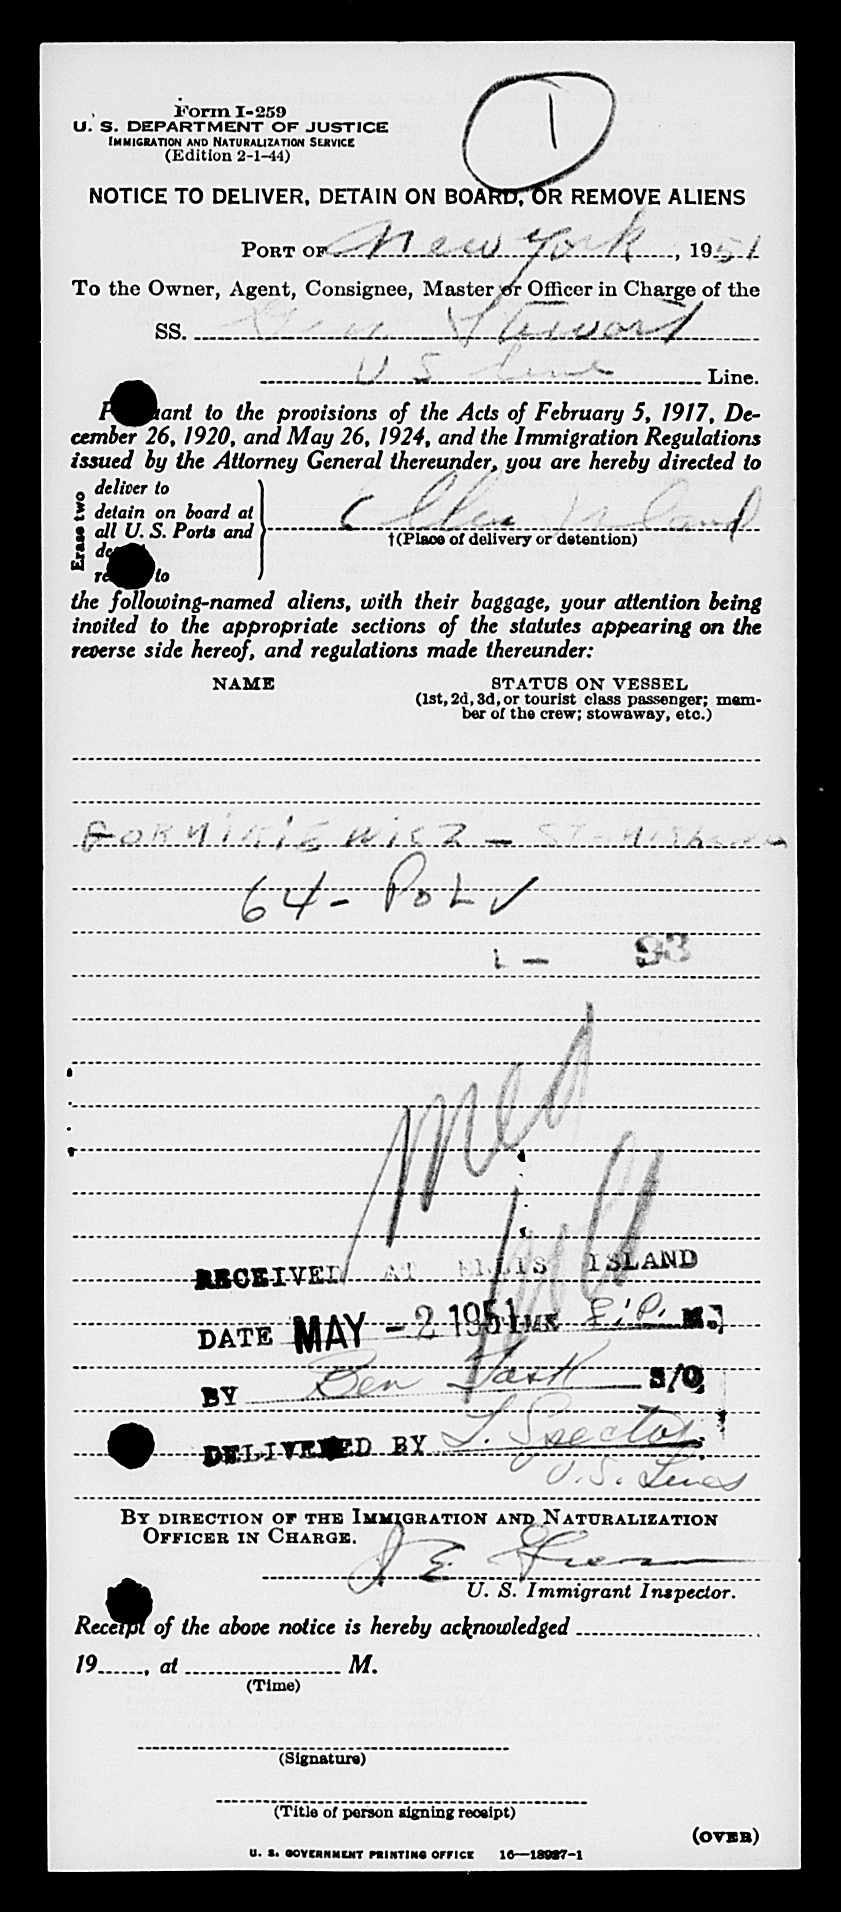 1
Form I-259
U. S. DEPARTMENT OF JUSTICE
IMMIGRATION AND NATURALIZATION SERVICE
(Edition 2-1-44)
NOTICE TO DELIVER, DETAIN ON BOARD, OR REMOVE ALIENS
PORT OF New York, 1951
To the Owner, Agent, Consignee, Master or Officer in Charge of the
SS. Gen Stewart
U S Line Line.
ant to the provisions of the Acts of February 5, 1917, De-
cember 26, 1920, and May 26, 1924, and the Immigration Regulations
issued by the Attorney General thereunder, you are hereby directed to
Erase two
deliver to
detain on board at
all U. S. Ports and
to
Ellis Island
†(Place of delivery or detention)
the following-named aliens, with their baggage, your attention being
invited to the appropriate sections of the statutes appearing on the
reverse side hereof, and regulations made thereunder:
NAME STATUS ON VESSEL
(1st, 2d, 3d, or tourist class passenger; mem-
ber of the crew; stowaway, etc.)
64 - POL ✓
1 - 93
Med
Hold
RECEIVED AT ELLIS ISLAND
DATE MAY - 2 1951 P. M.
BY Ben S/O
DELIVERED BY L. Spector
U.S. Lines
BY DIRECTION OF THE IMMIGRATION AND NATURALIZATION
OFFICER IN CHARGE.
J E
U. S. Immigrant Inspector.
Receipt of the above notice is hereby acknowledged
19......, at M.
(Time)
(Signature)
(Title of person signing receipt)
(OVER)
U. S. GOVERNMENT PRINTING OFFICE 16—18987-1